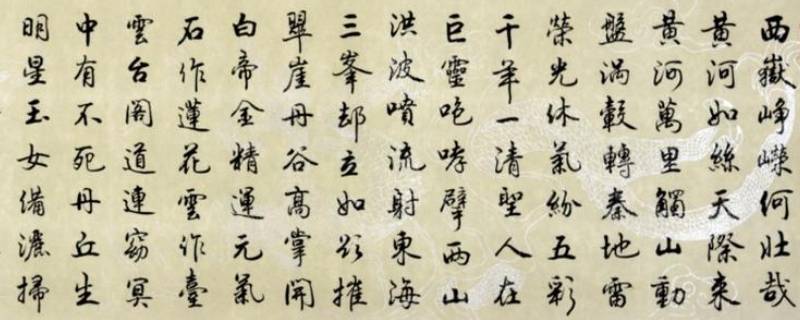 西嶽崢嶸何壯哉
黃河如絲天際來
黃河萬里觸山動
盤渦轂轉秦地雷
榮光休氣紛五彩
千年一清聖人在
巨靈咆哮擘兩山
洪波噴流射東海
三峯却立如欲摧
翠崖丹谷高掌開
白帝金精運元氣
石作蓮花雲作臺
雲台閣道連窈冥
中有不死丹丘生
明星玉女備灑掃